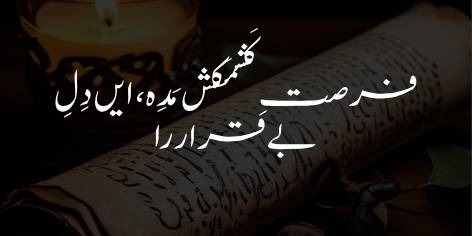 فرصت کَشمکش مَدِہ، ایں دِلِ
بے قَرار را